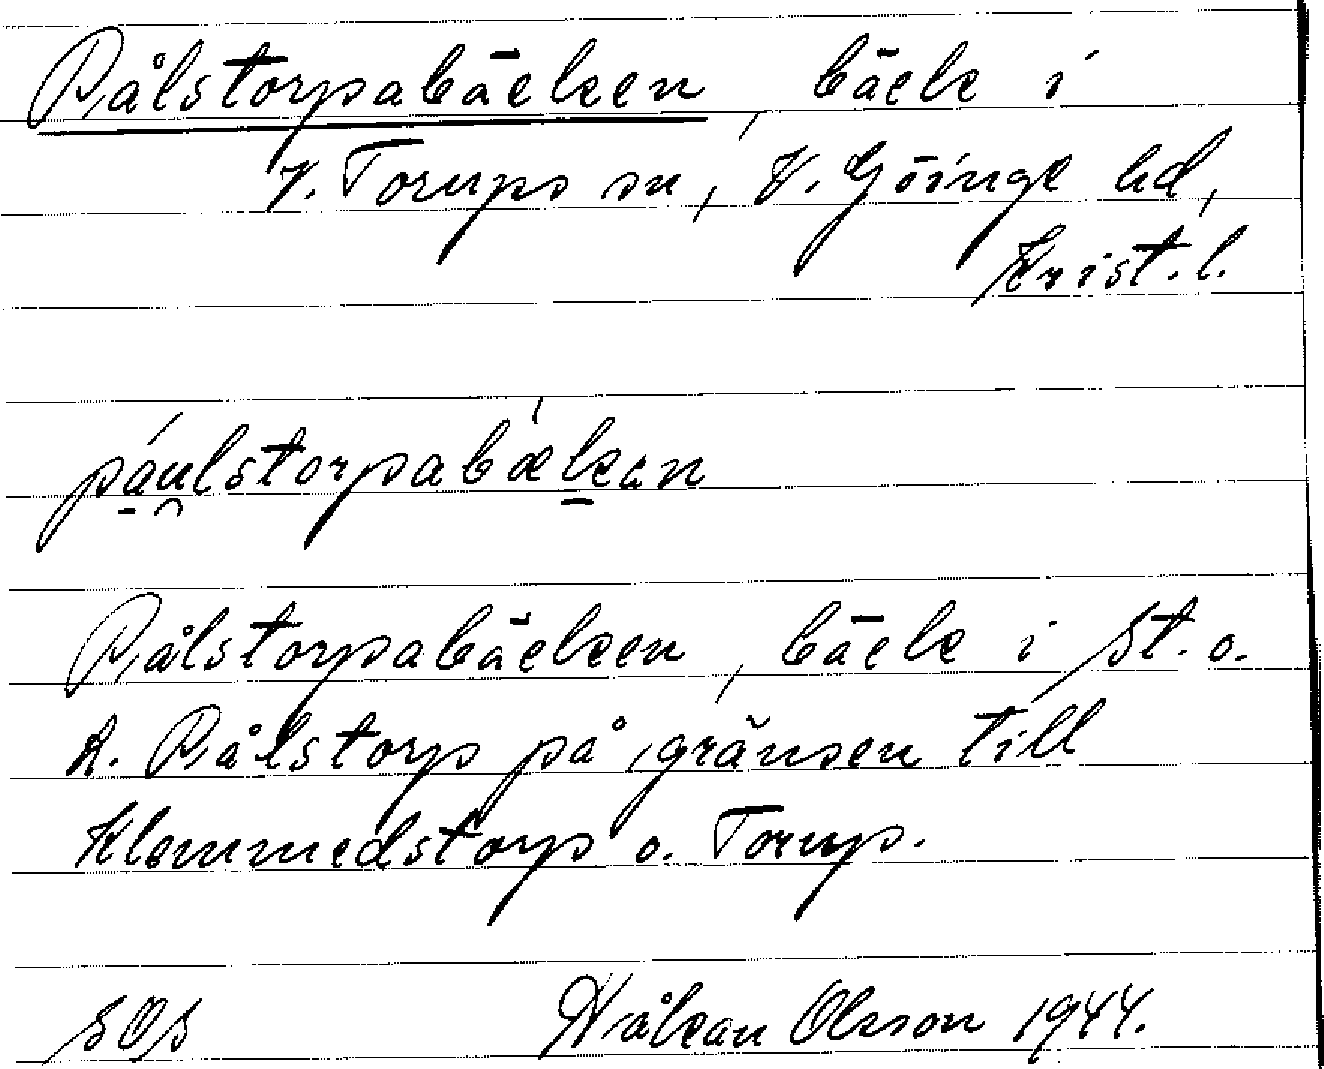 Pålstorpabäcken, bäck i
V. Torups sn, V. Göinge hd,
Krist. l.
páulstorpabækan
Pålstorpabäcken, bäck i St. o.
L. Pålstorp på gränsen till
Klemmedstorp o. Torup.
SOS Håkan Olsson 1944.